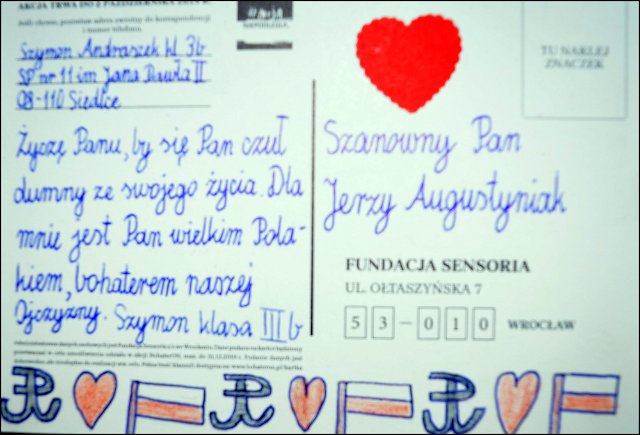 AKCJA TRWA DO 2 PAŹDZIERNIKA
Szymon Andraszek kl. 3b
SP nr 11 im Jana Pawła II
08-110 Siedlce
Życzę Panu, by się Pan czuł
dumny ze swojego życia. Dla
mnie jest Pan wielkim Pola-
kiem, bohaterem naszej
Ojczyzny. Szymon klasa III b
TU NAKLEJ
ZNACZEK
Szanowny Pan
Jerzy Augustyniak
FUNDACJA SENSORIA
UL. OŁTASZYŃSKA 7
53-010 WROCŁAW